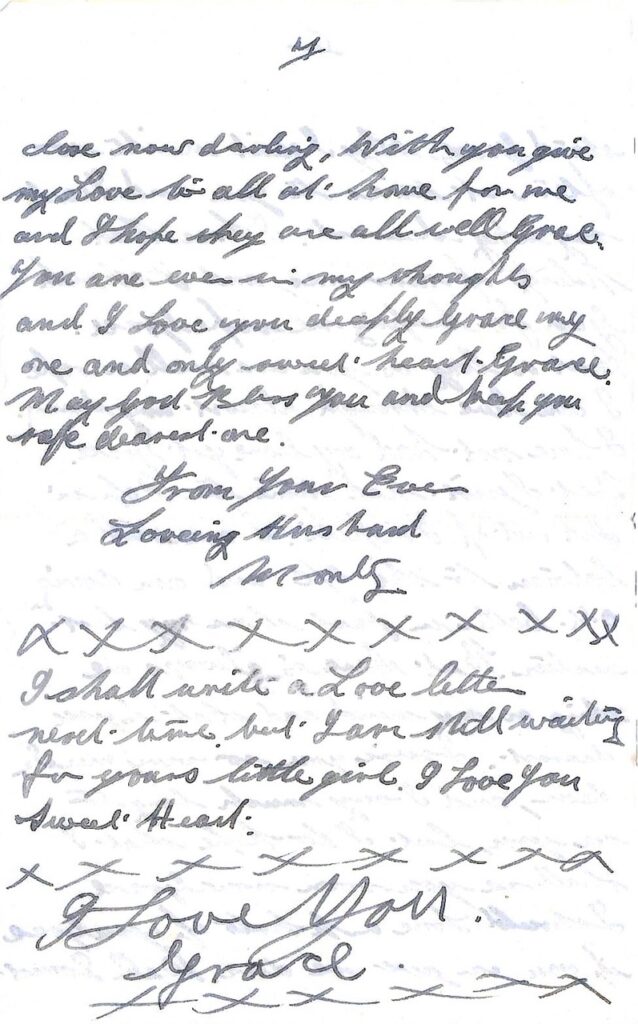 4
close now darling, With you give
my Love to all at home for me
and I hope they are all well Grace.
You are ever in my thoughts
and I Love you deaply Grace my
one and only sweet heart Grace.
May God Bless You and keep you
safe dearest one.
From Your Ever
Loveing Husband
Monty
X X X X X X X X X X
I shall write a Love letter
next time but I am still waiting
for yours little girl. I Love You
Sweet Heart.
X X X X X X X X X
I Love You.
Grace.
X X X X X X X X